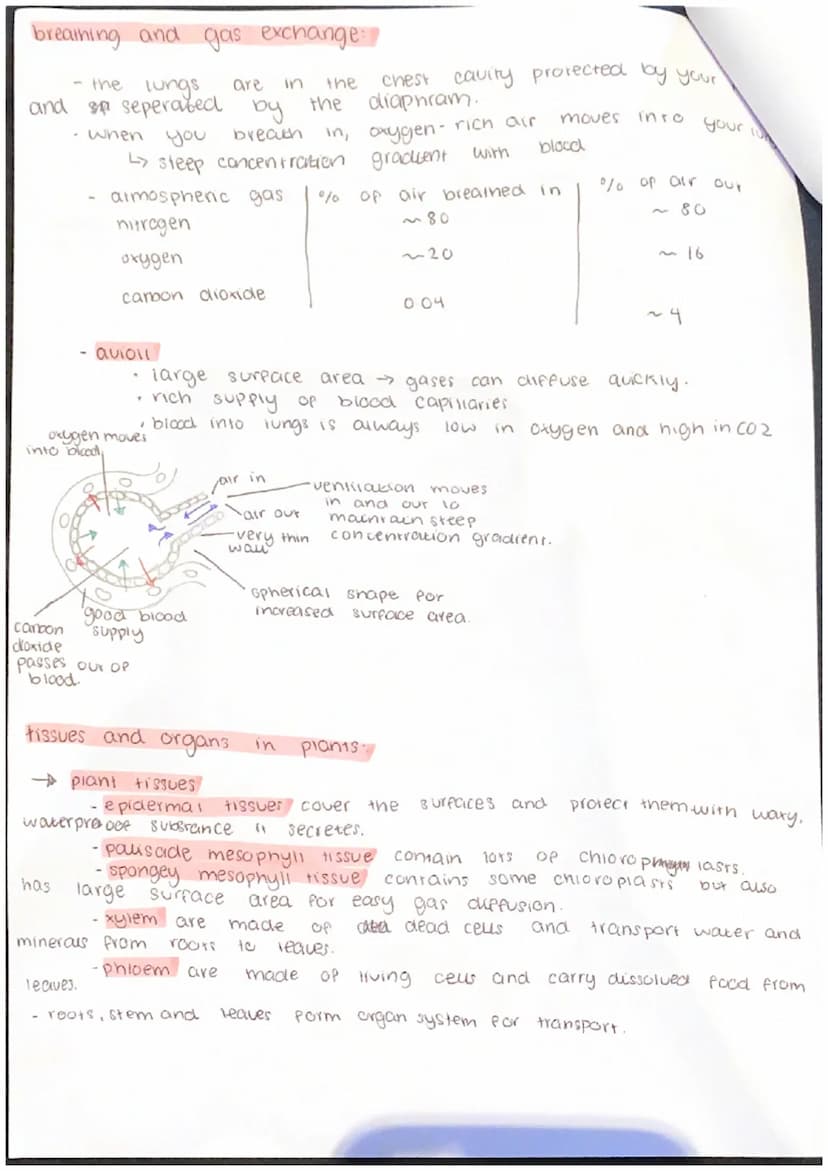 breathing and gas exchange:
- the lungs are in the chest cavity protected by your
and seperated by the diaphram.
- when you breath in, oxygen-rich air moves into your
↳ steep concentration gradient with blood
- atmospheric gas | % of air breathed in | % of air out
nitrogen ~80 ~80
oxygen ~20 ~16
carbon dioxide 0.04 ~4
- avioli
• large surface area → gases can diffuse quickly.
• rich supply of blood capillaries
• blood into lungs is always low in oxygen and high in CO2
oxygen moves
into blood
air in
air out
very thin
wall
ventilation moves
in and out to
maintain steep
concentration gradient.
spherical shape for
increased surface area.
good blood
supply
carbon
dioxide
passes out of
blood.
tissues and organs in plants:
→ plant tissues
- epidermal tissues cover the surfaces and protect them with waxy,
waterproof substance it secretes.
- palisade mesophyll tissue contain lots of chloroplasts.
- spongey mesophyll tissue contains some chloroplasts but also
has large surface area for easy gas diffusion.
- xylem are made of dead cells and transport water and
minerals from roots to leaves.
- phloem are made of living cells and carry dissolved food from
leaves.
- roots, stem and leaves form organ system for transport.